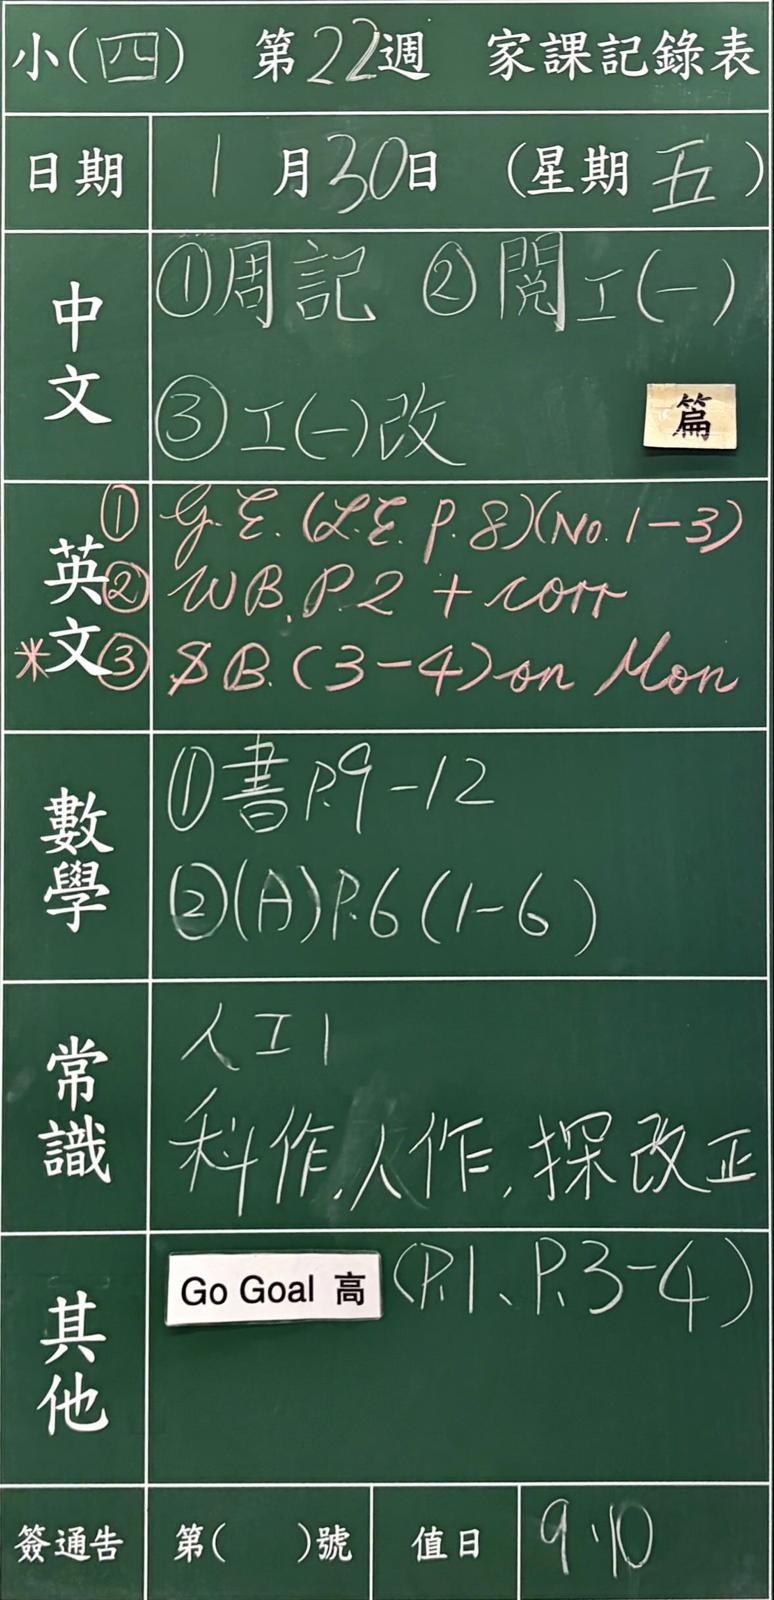 小(四) 第22週 家課記錄表
日期 1月30日 (星期五)
中文
①周記 ②閱工(一)
③工(一)改 篇
英文
① G.E. (L.E. P.8)(No. 1-3)
② WB. P.2 + corr
*③ $ B. (3-4) on Mon
數學
①書P.9-12
②(A)P.6(1-6)
常識
人工1
科作,人作,探改正
其他
Go Goal 高 (P.1、P.3-4)
簽通告 第( )號 值日 9.10